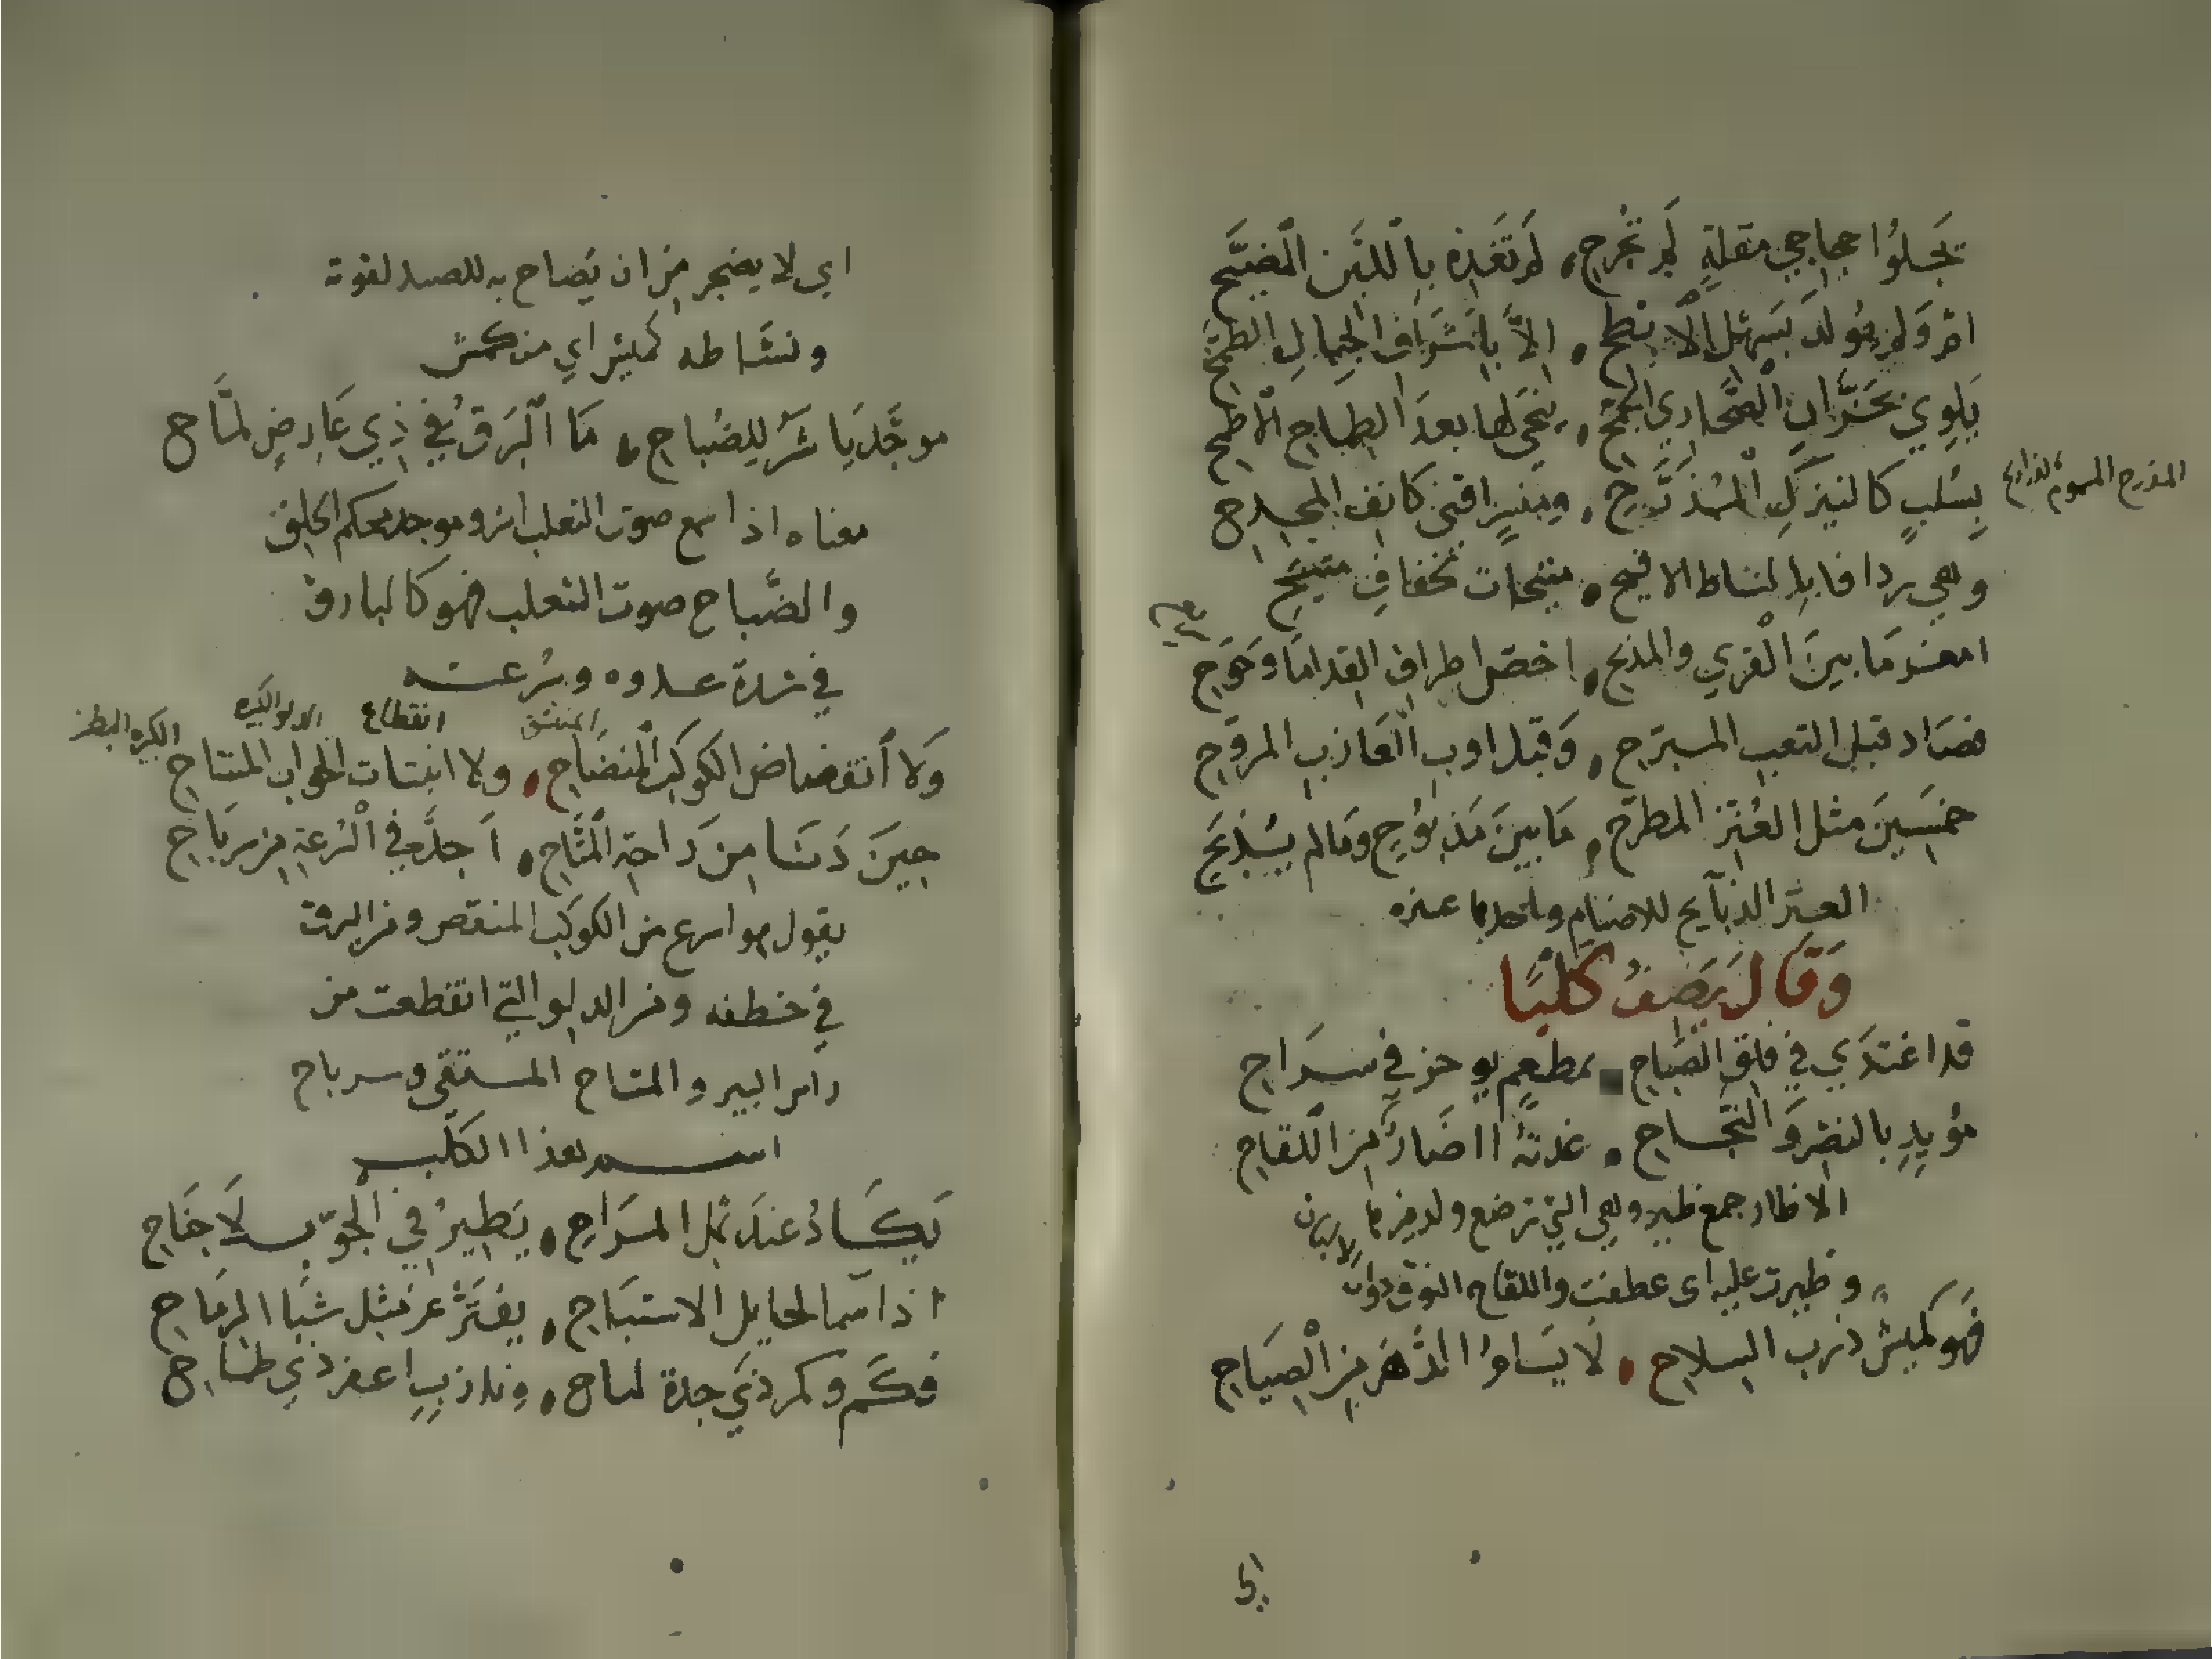 يجلوا حجاجي مقلة لم تجرح، لم تغذه باللبن المضيح
ام ولم يولد بسهل الابطح، الا باشراف الجبال الطمح
يلوي بخزان الصحاري الجمح، ينحى لها بعد الطماح الاطمح
بسلب كالنيزك المذرح، ومنسر اقنى كانف المجدح
المذرح المسموم
وهي ردافا بالبساط الافيح، متيح
ما بين القرى والمذبح
فصاد قبل التعب المبرح، وقبل اوب العازب المروح
خمسين مثل العنز المطرح، ما بين مذبوح وما لم يذبح
العتر الذبايح للاصنام عتره
وقال يصف كلبا
قد اغتدي في فلق الصباح، بمطعم يوجز في سراح
مؤيد بالنصر والنجاح، غذته اظار من اللقاح
الاظار جمع ظير وهي التي ترضع ولد غيرها
وظيرت عليه اى عطفت واللقاح النوق ذوات الالبان
فهو كميش ذرب السلاح، لا يسام الدهر من الصياح
اي
اي لا يضجر من ان يصاح به للصيد لقوته
ونشاطه كميش اي منكمش
موجد ياشر للضباح، ما البرق في ذي عارض لماح
معناه اذا سمع صوت الثعلب اشر وموجد محكم الخلق
والضباح صوت الثعلب فهو كالبارق
في شدة عدوه وسرعته
المنشق انقطاع الدلو الكبيره
ولا انقضاض الكوكب المنصاح، ولا انبتات الحواب المنتاح
حين دنا من راحة المتاح، اجد في السرعة من سرياح
يقول هو اسرع من الكوكب المنقض ومن البرق
في خطفه ومن الدلو التي انقطعت من
راس البير والمتاح المستقي وسرياح
اسم هذا الكلب
يكاد عند ثمل المراح، يطير في الجو بلا جناح
اذا سما لحايل الاستباح، يفتر عن مثل شبا الرماح
فكم وكم ذي جدة لماح، ونازب اعفر ذي طماح